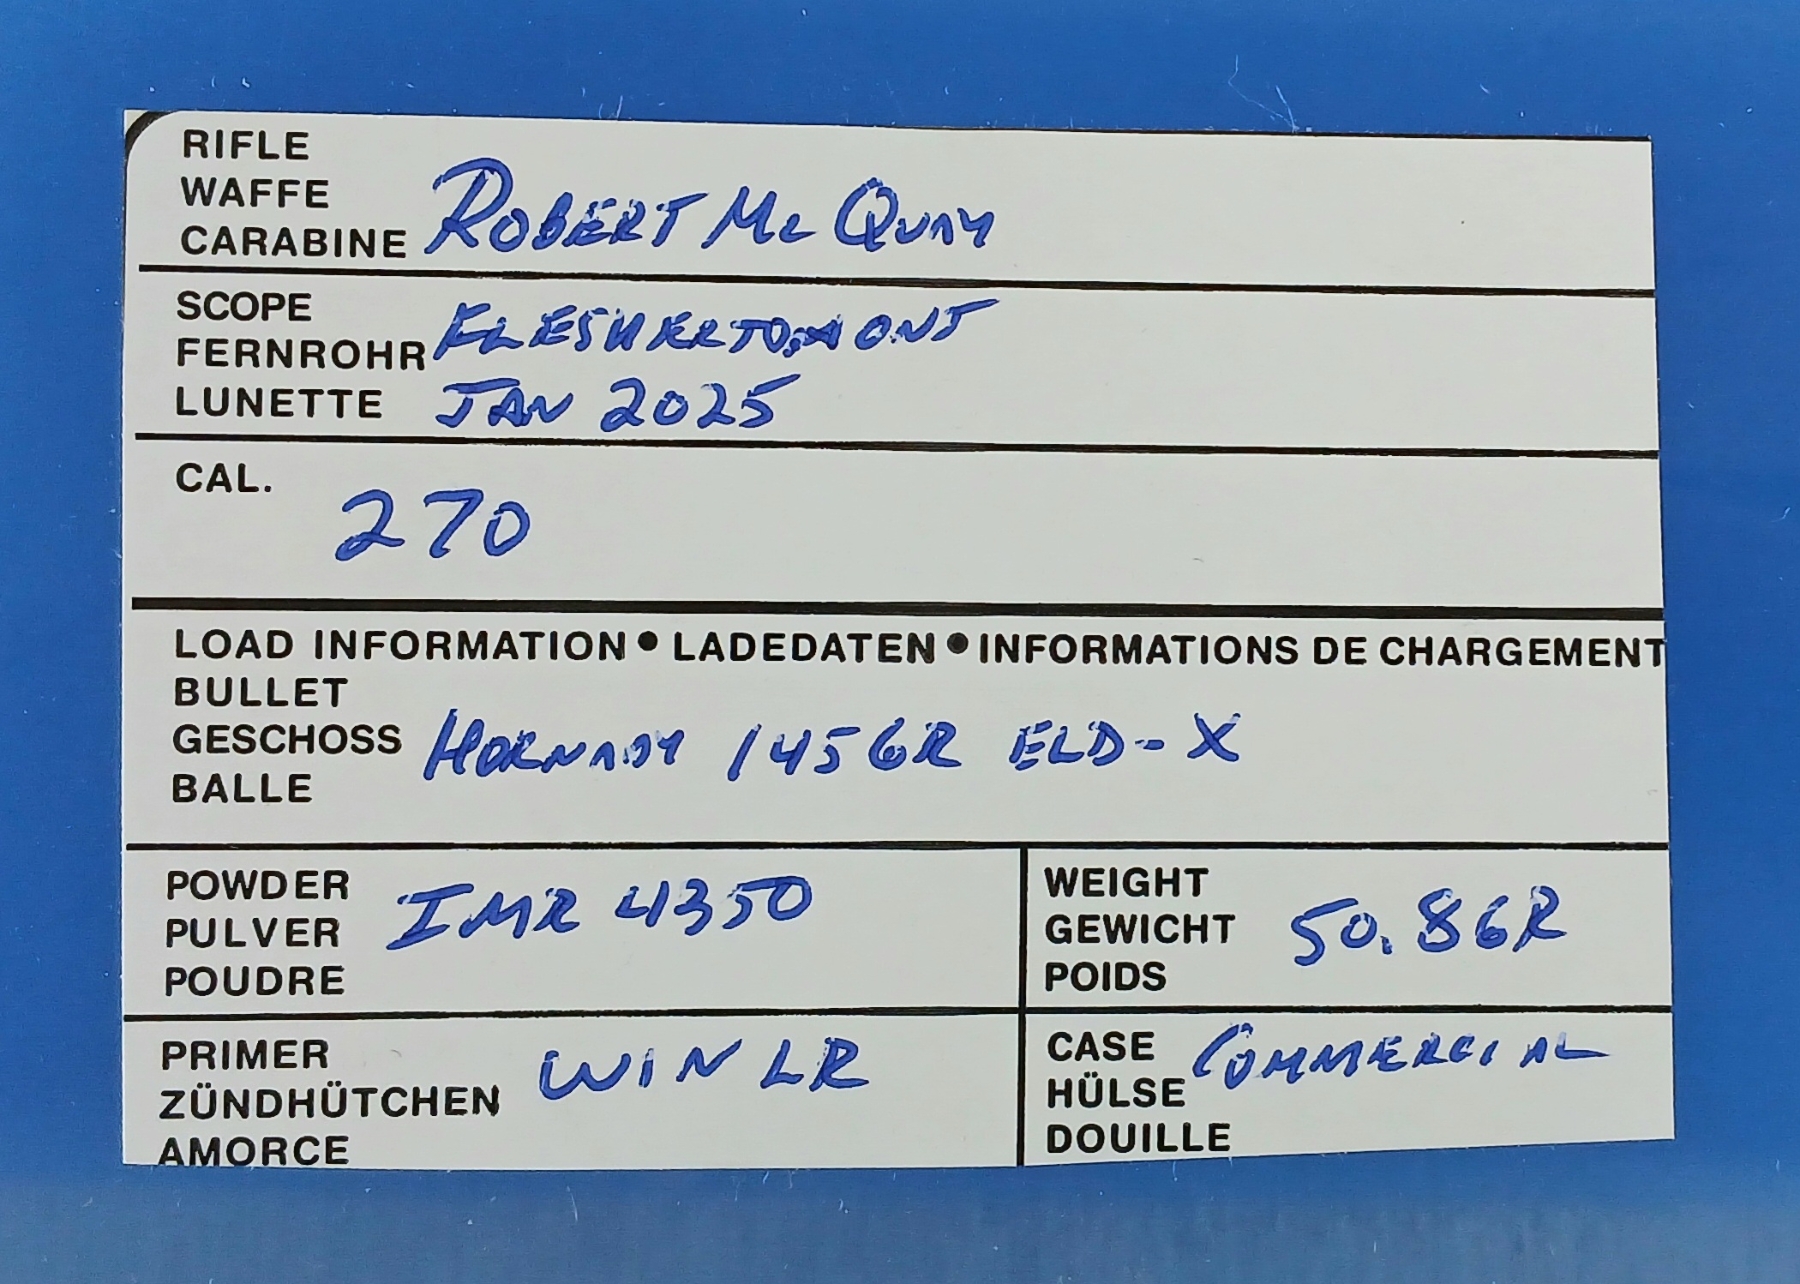 RIFLE
WAFFE
CARABINE
ROBERT MC QUAY
SCOPE
FERNROHR
LUNETTE
FLESHERTON ONT
JAN 2025
CAL.
270
LOAD INFORMATION • LADEDATEN • INFORMATIONS DE CHARGEMENT
BULLET
GESCHOSS
BALLE
HORNADY 145 GR ELD-X
POWDER
PULVER
POUDRE
IMR 4350
WEIGHT
GEWICHT
POIDS
50.8 GR
PRIMER
ZÜNDHÜTCHEN
AMORCE
WIN LR
CASE
HÜLSE
DOUILLE
COMMERCIAL